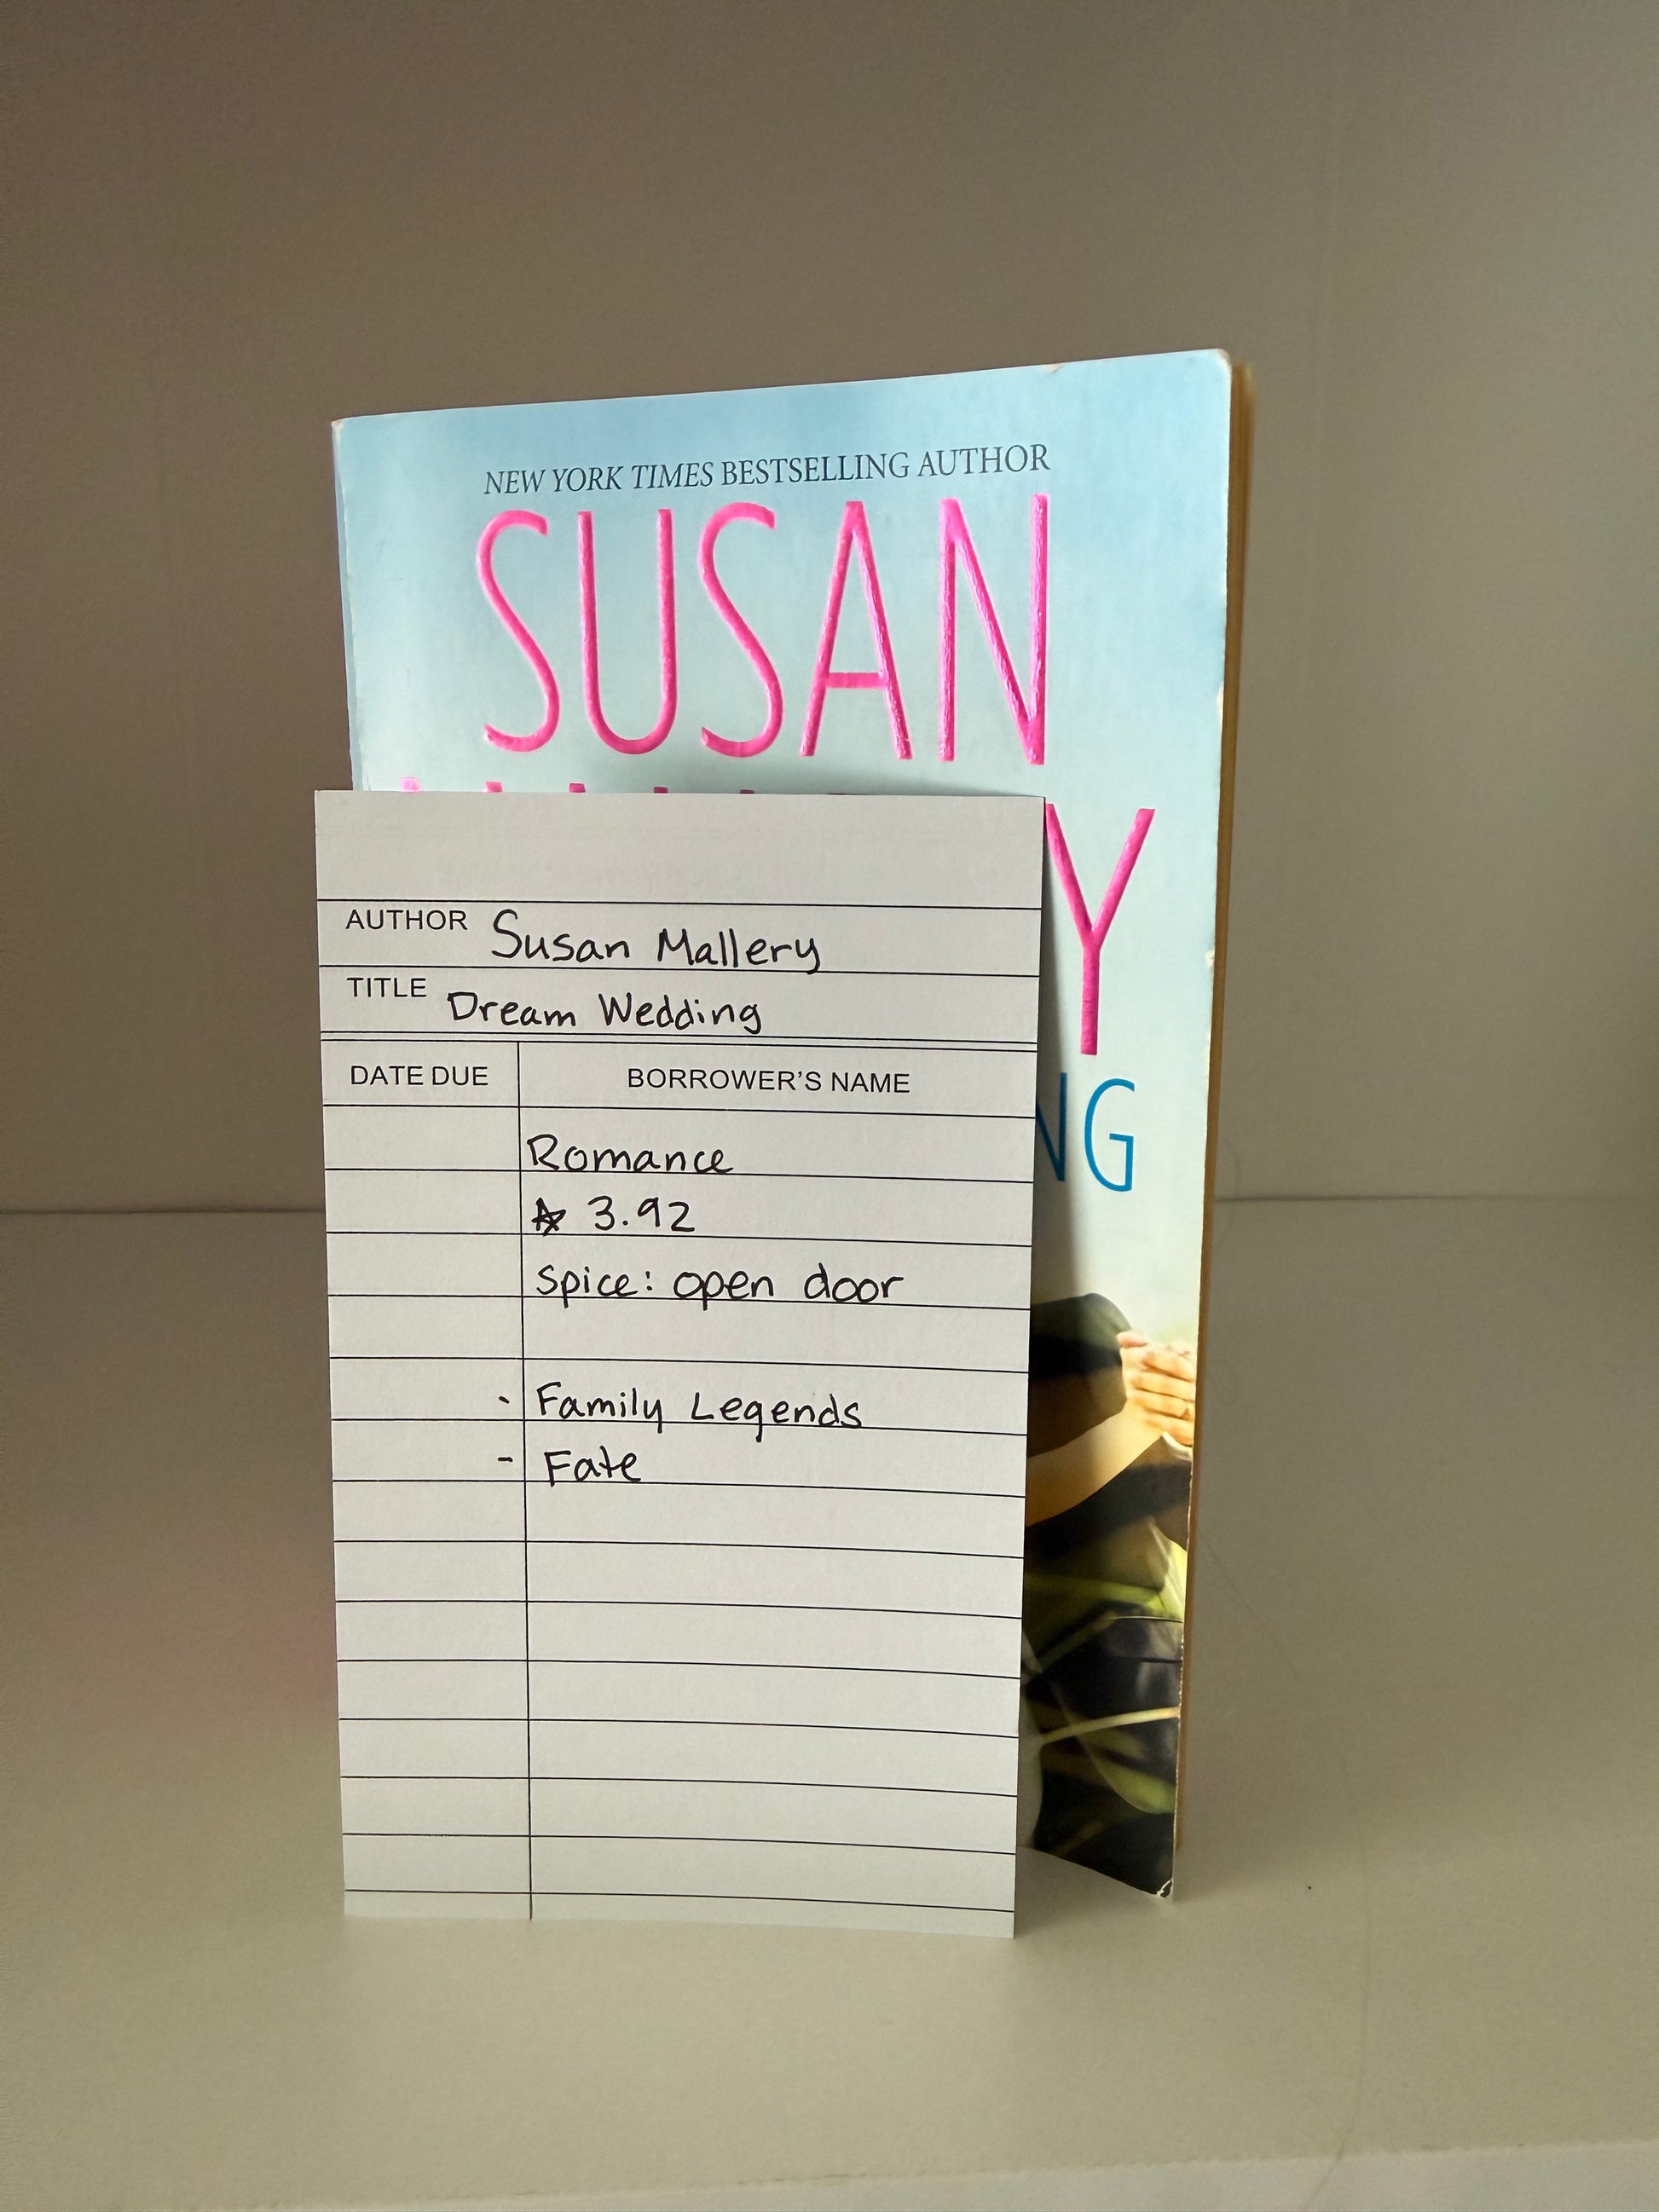 NEW YORK TIMES BESTSELLING AUTHOR
SUSAN
Y
NG
AUTHOR Susan Mallery
TITLE Dream Wedding
DATE DUE BORROWER'S NAME
Romance
☆ 3.92
Spice: open door
- Family Legends
- Fate